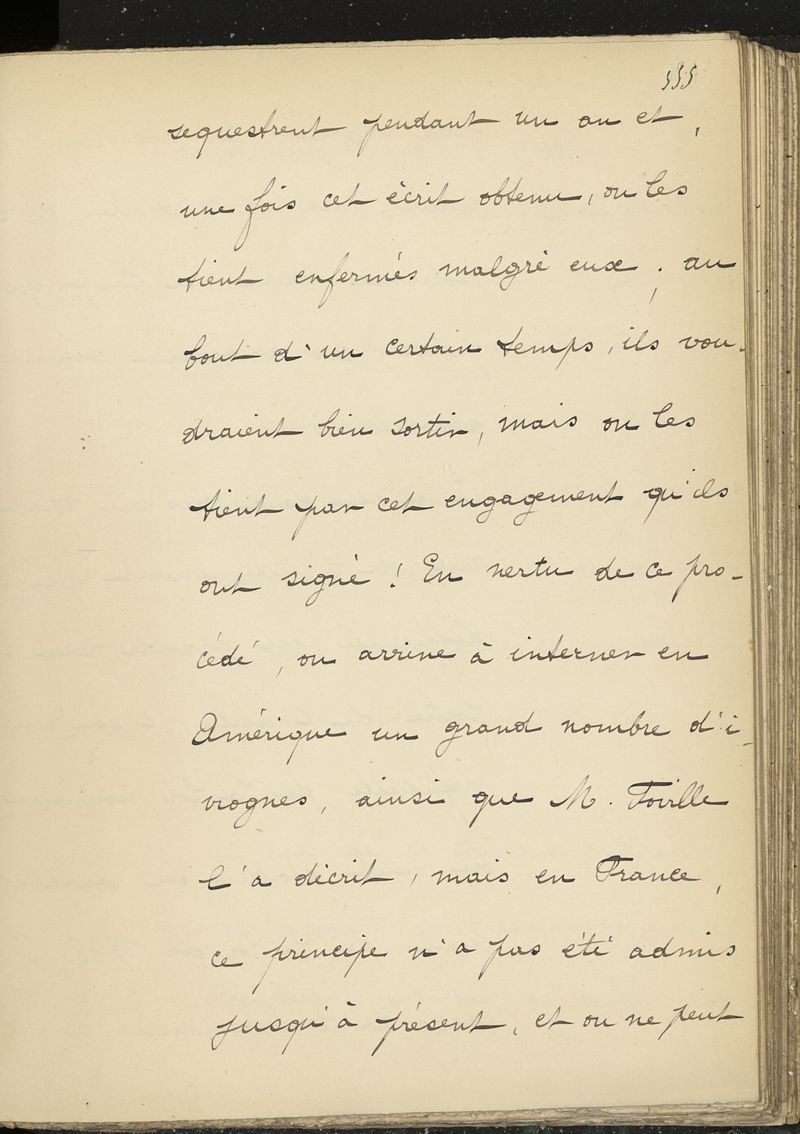 555
sequestrent pendant un an et,
une fois cet écrit obtenu, on les
tient enfermés malgré eux ; au
bout d'un certain temps, ils vou-
draient bien sortir, mais on les
tient par cet engagement qu'ils
ont signé ! En vertu de ce pro-
cédé, on arrive à interner en
Amérique un grand nombre d'i-
vrognes, ainsi que M. Foville
l'a décrit, mais en France,
ce principe n'a pas été admis
jusqu'à présent, et on ne peut